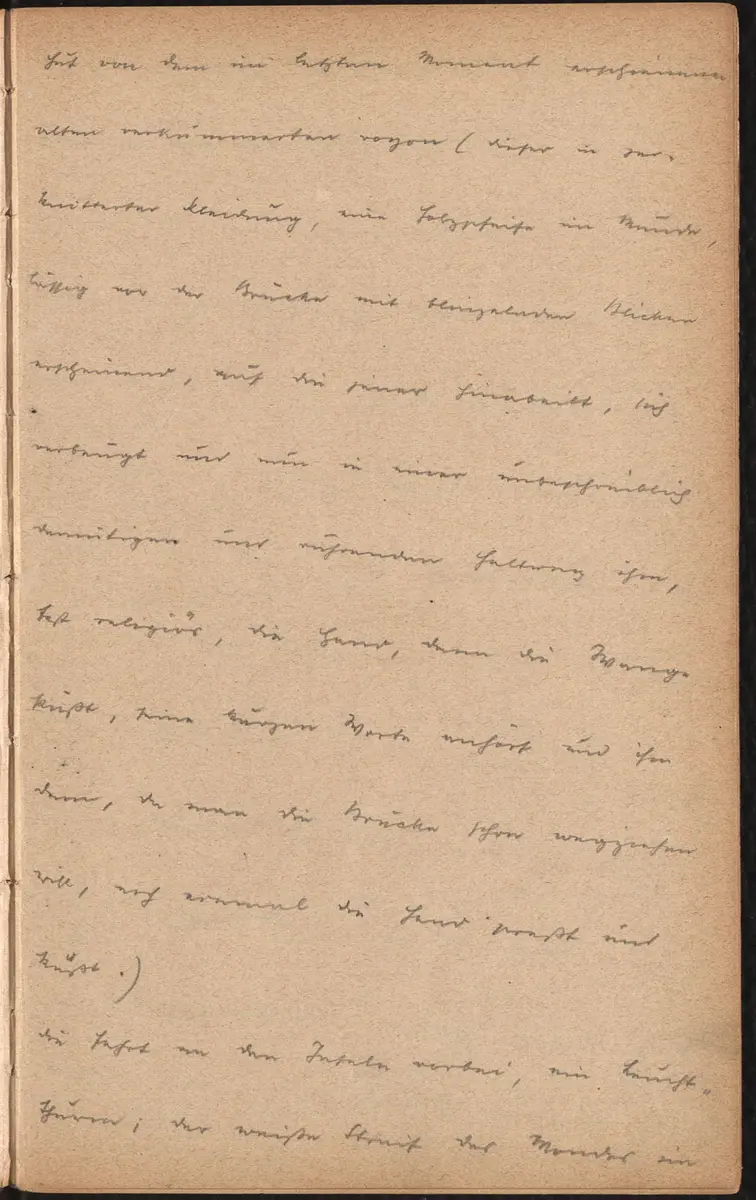 hat von dem im letzten Moment erscheinenden
alten verkümmerten (dieser in zer-
knitterter Kleidung, eine Holzpfeife im Munde,
lässig vor der Brücke mit blinzelnden Blicken
erscheinend, auf die jener hinabeilt, sich
verbeugt und nun in einer unbeschreiblich
demütigen und rührenden Haltung ihm,
fast religiös, die Hand, dann die Wange
küßt, seine kurzen Worte anhört und ihm
dann, da man die Brücke schon wegziehen
will, noch einmal die Hand preßt und
küßt.)
die Fahrt an den Inseln vorbei, ein Leucht-
thurm; der weiße Streif des Mondes im